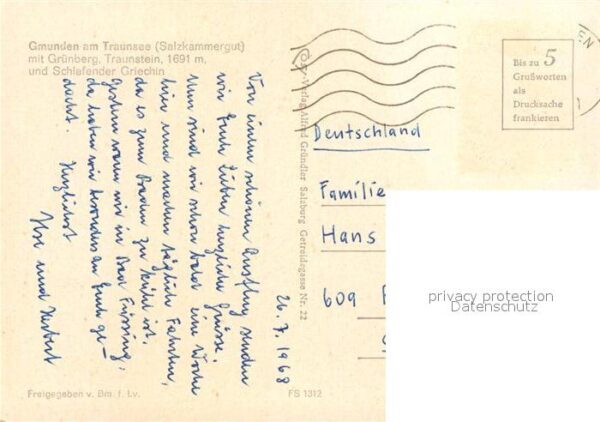 Gmunden am Traunsee (Salzkammergut)
mit Grünberg, Traunstein, 1691 m,
und Schlafender Griechin
26.7.1968
Von einem schönen Ausflug senden
wir Euch Lieben herzliche Grüsse!
Nun sind wir schon bald eine Woche
hier und machen täglich Fahrten,
da es zum Baden zu kühl ist.
Gestern waren wir in Bad Füssing,
da haben wir besonders an Euch ge-
dacht. Herzlichst
und Herbert
Freigegeben v. Bm. f. Lv.
FS 1312
Verlag Alfred Gründler Salzburg Getreidegasse Nr. 22
Bis zu 5
Grußworten
als
Drucksache
frankieren
EN
Deutschland
Familie
Hans
609
privacy protection
Datenschutz